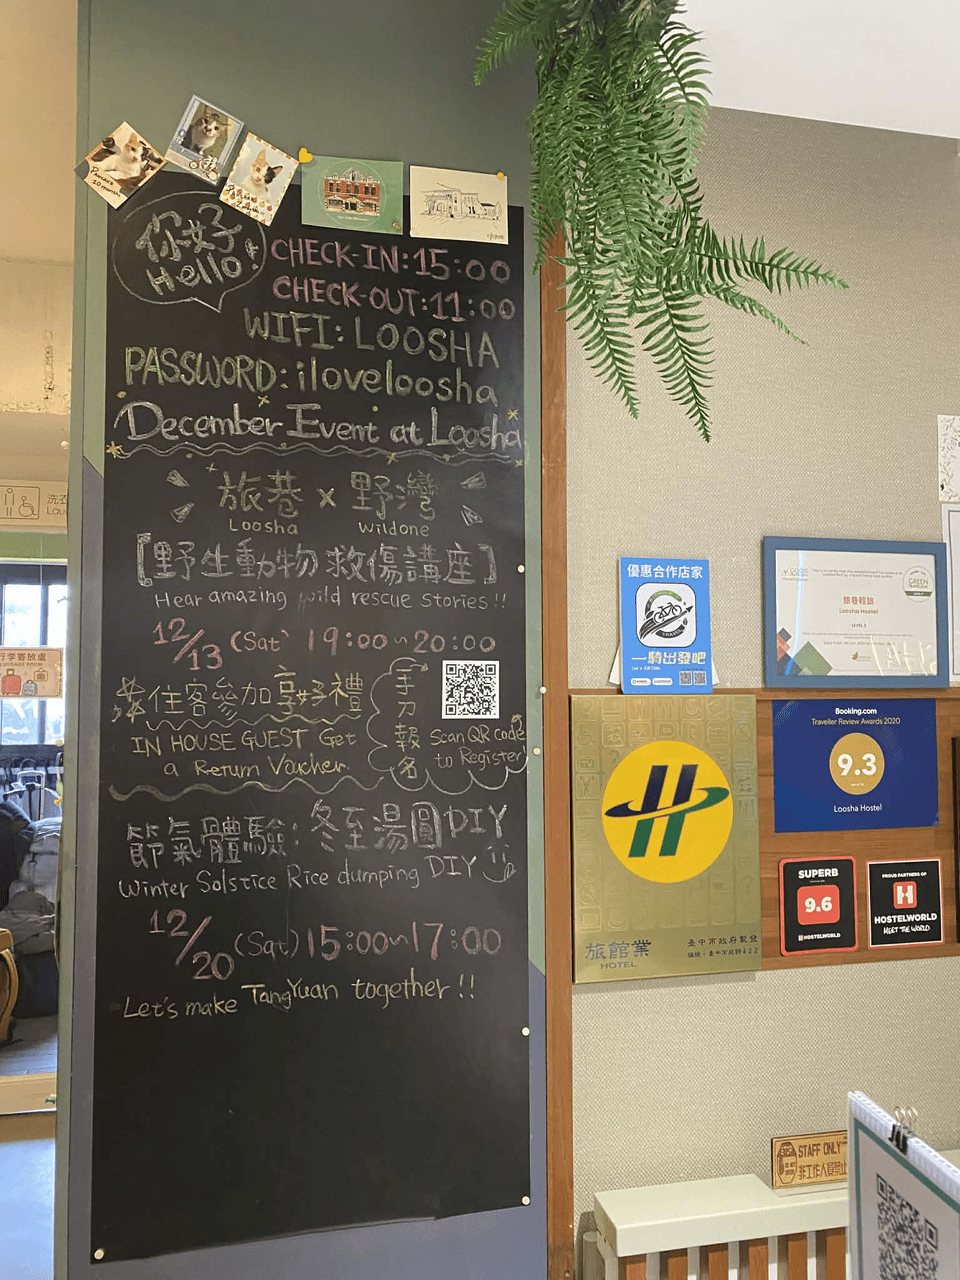 你好
Hello!
CHECK-IN:15:00
CHECK-OUT:11:00
WIFI: LOOSHA
PASSWORD: iloveloosha
December Event at Loosha
旅巷 x 野灣
Loosha Wildone
[野生動物救傷講座]
Hear amazing wild rescue stories!!
12/13 (Sat) 19:00~20:00
住客參加享好禮
IN HOUSE GUEST Get
a Return Voucher
手刀報名
Scan QR code
to Register
節氣體驗: 冬至湯圓DIY
Winter Solstice Rice dumping DIY
12/20 (Sat) 15:00~17:00
Let's make TangYuan together!!
洗衣
行李寄放處
LUGGAGE ROOM
優惠合作店家
TRAVEL
一騎出發吧
GREEN
旅巷輕旅
Loosha Hostel
LEVEL 2
Booking.com
Traveller Review Awards 2020
9.3
Loosha Hostel
旅館業
HOTEL
臺中市政府製發
SUPERB
9.6
HOSTELWORLD
PROUD PARTNERS OF
H
HOSTELWORLD
MEET THE WORLD
STAFF ONLY
非工作人員禁止